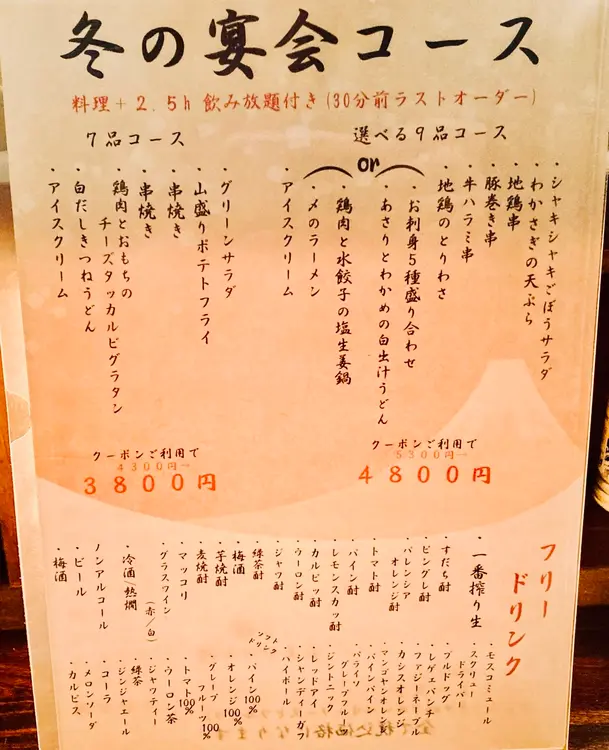 冬の宴会コース
料理+2.5h飲み放題付き(30分前ラストオーダー)
選べる9品コース
・シャキシャキごぼうサラダ
・わかさぎの天ぷら
・地鶏串
・豚巻き串
・牛ハラミ串
・地鶏のとりわさ
・お刺身5種盛り合わせ
・あさりとわかめの白出汁うどん
or
・鶏肉と水餃子の塩生姜鍋
・〆のラーメン
・アイスクリーム
クーポンご利用で
5300円→
4800円
7品コース
・グリーンサラダ
・山盛りポテトフライ
・串焼き
・串焼き
・鶏肉とおもちの
チーズタッカルビグラタン
・白だしきつねうどん
・アイスクリーム
クーポンご利用で
4300円→
3800円
フリー
ドリンク
・一番搾り生
・すだち酎
・ピングレ酎
・バレンシア
オレンジ酎
・トマト酎
・パイン酎
・レモンスカッ酎
・カルピッ酎
・ウーロン酎
・ジャツ酎
・緑茶酎
・梅酒
・芋焼酎
・麦焼酎
・マッコリ
・グラスワイン
(赤/白)
・冷酒/熱燗
ノンアルコール
・ビール
・梅酒
・モスコミュール
・スクリュー
ドライバー
・ブルドッグ
・レゲエパンチ
・ファジーネーブル
・カシスオレンジ
・マンゴヤンオレンジ
・パインパイン
・パライソ
グレープフルーツ
・ジントニック
・レッドアイ
・シャンディーガフ
・ハイボール
ソフト
ドリンク
・パイン100%
・オレンジ100%
・グレープ
フルーツ100%
・トマト100%
・ウーロン茶
・ジャワティー
・緑茶
・ジンジャエール
・コーラ
・メロンソーダ
・カルピス